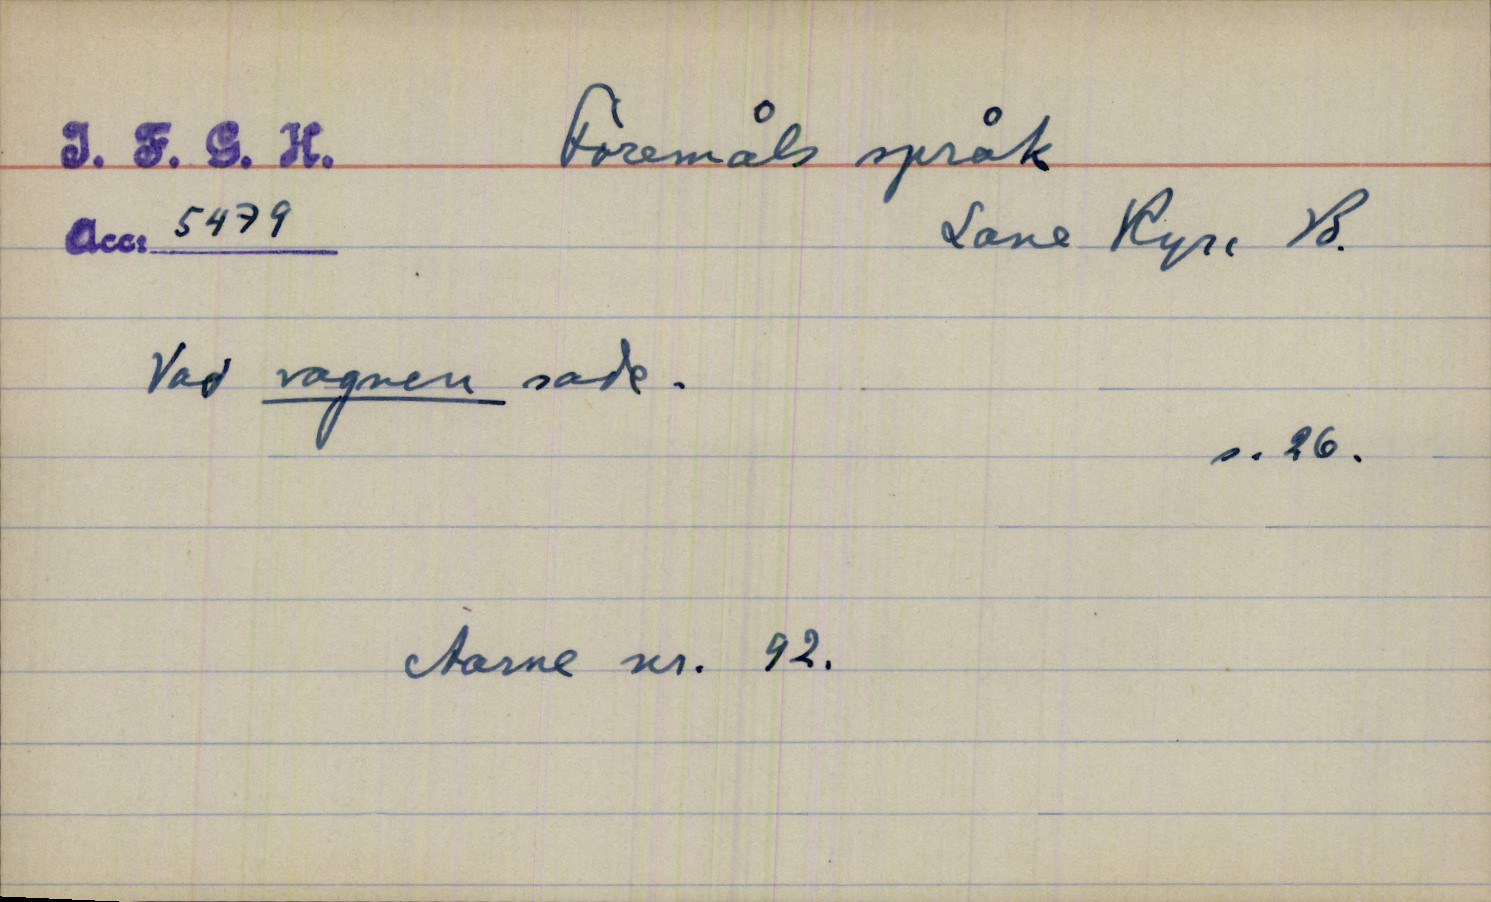 I. F. G. H.
Föremåls språk
Acc: 5479
Lane Ryr, B.
Vad vagnen sade.
s. 26.
Aarne nr. 92.